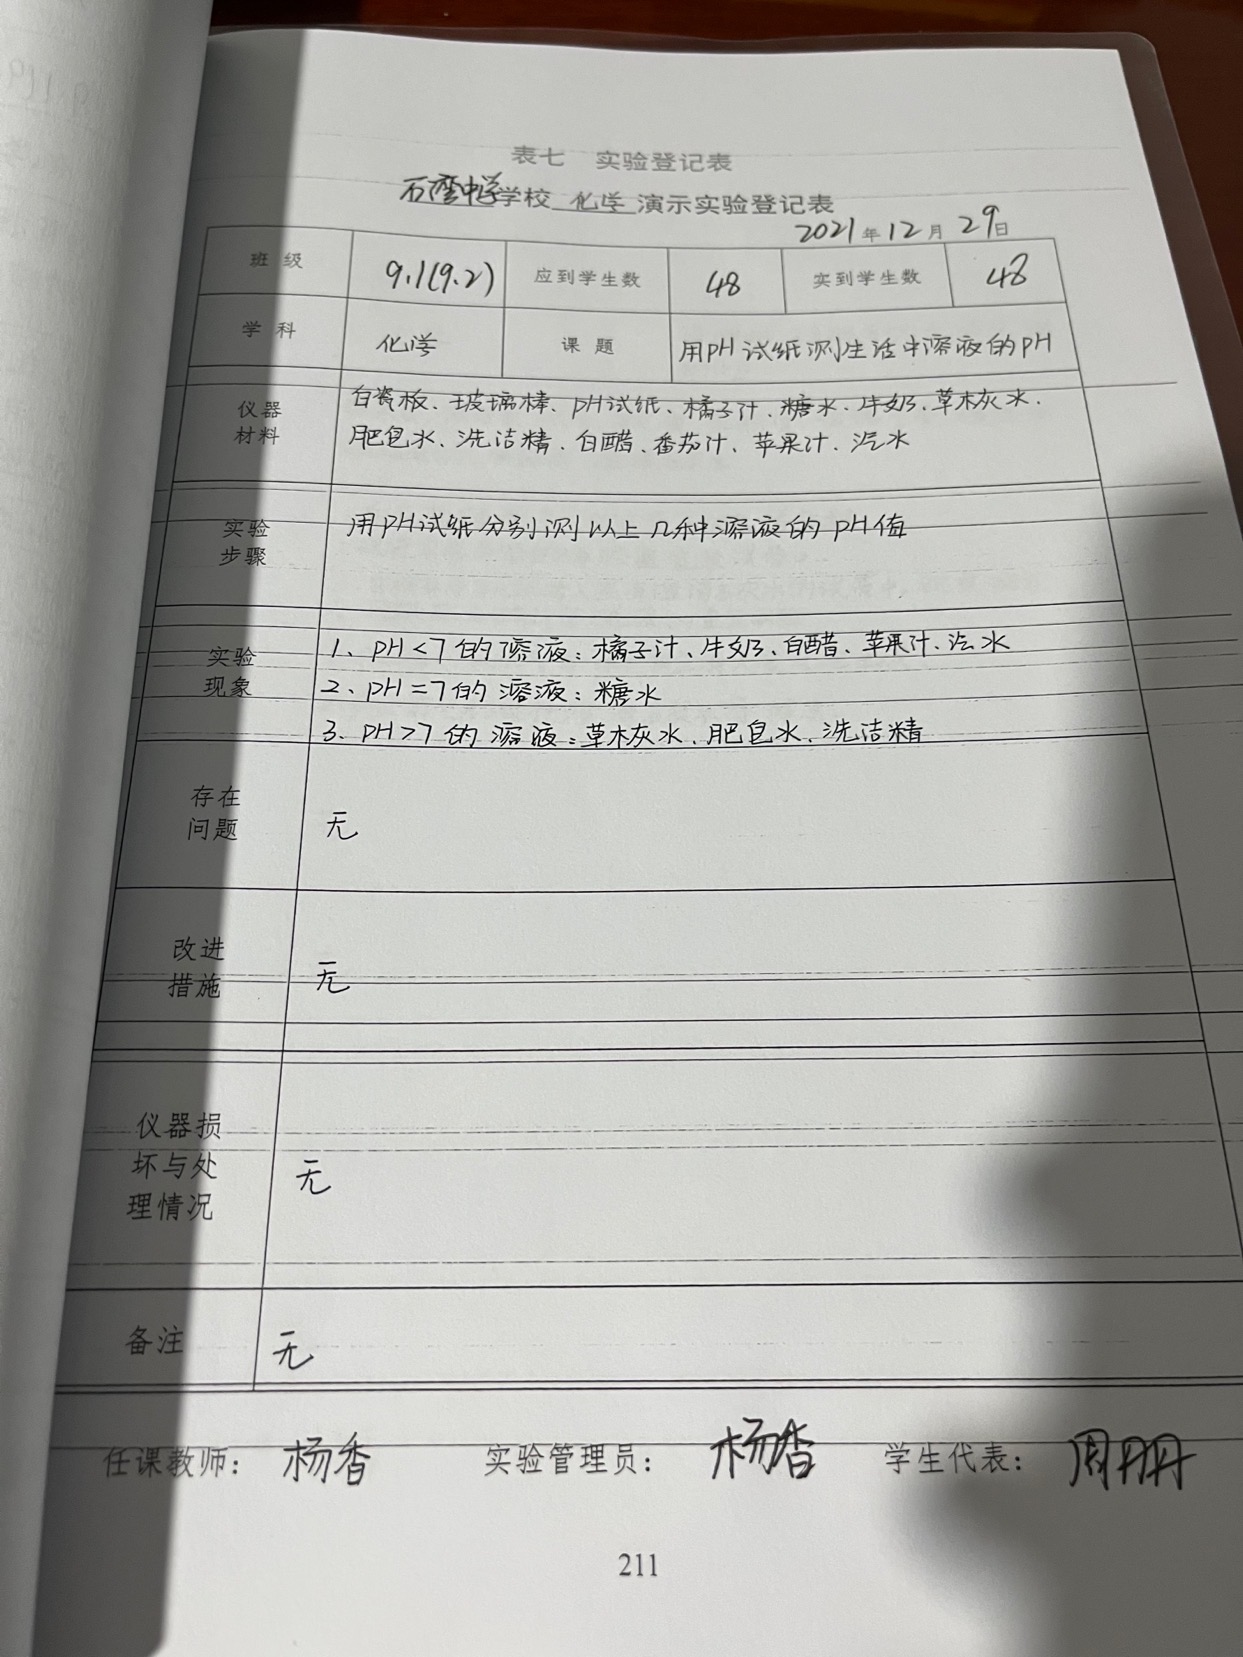 表七 实验登记表
石磴中学学校 化学 演示实验登记表
2021年12月29日
班级 9.1(9.2) 应到学生数 48 实到学生数 48
学科 化学 课题 用PH试纸测生活中溶液的PH
仪器材料 白瓷板、玻璃棒、PH试纸、橘子汁、糖水、牛奶、草木灰水、
肥皂水、洗洁精、白醋、番茄汁、苹果汁、汽水
实验步骤 用PH试纸分别测以上几种溶液的PH值
实验现象 1、PH<7的溶液:橘子汁、牛奶、白醋、苹果汁、汽水
2、PH=7的溶液:糖水
3、PH>7的溶液:草木灰水、肥皂水、洗洁精
存在问题 无
改进措施 无
仪器损坏与处理情况 无
备注 无
任课教师: 杨香 实验管理员: 杨香 学生代表: 周丹丹
211